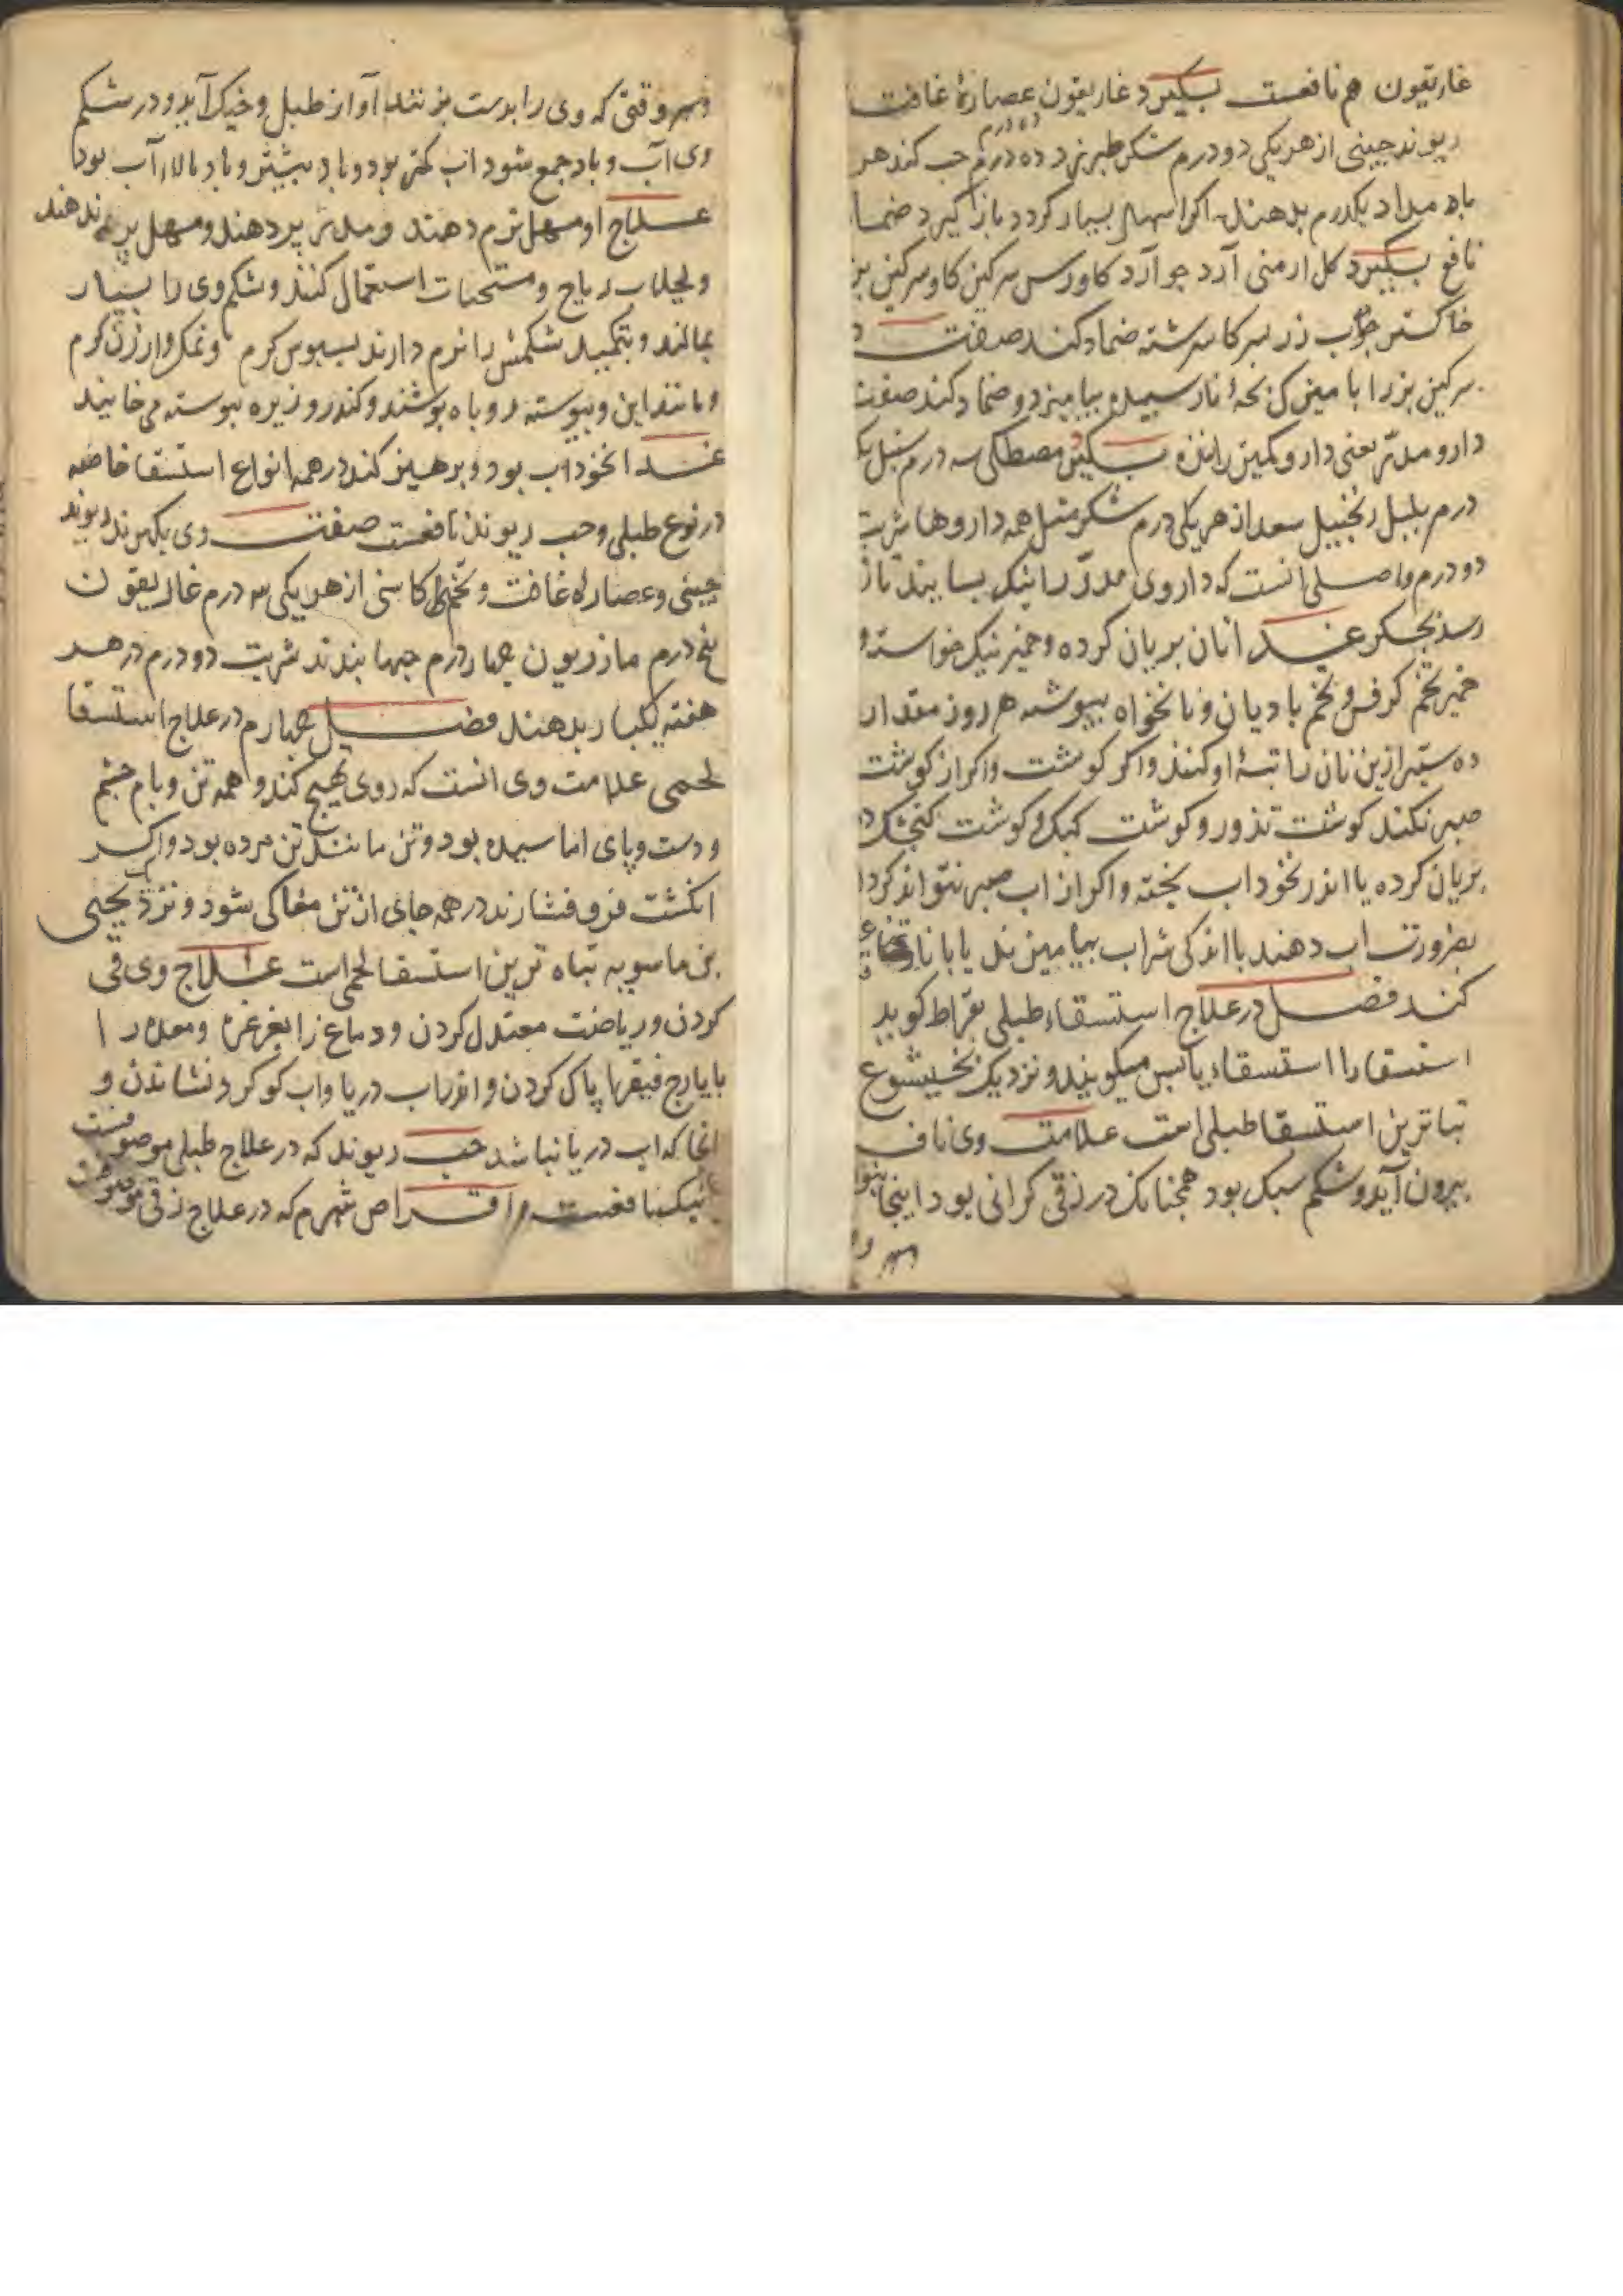 غاریقون هم نافعست بکیرد غاریقون عصارهٔ غافت
ریوند چینی از هر یکی دو درم شکر طبرزد ده درم حب کند هر
بامداد یکدرم بدهند اکر اسهال بسیار کردد باز کیرد ضما
نافع بکیرد کل ارمنی آرد جو آرد کاورس سرکین کاو سرکین بز
خاکستر چوب رز بسرکا سرشته ضماد کند صفت
سرکین بز را با میزک بچهٔ نارسیده بیامیزد و ضماد کند صفت
دارو مدر یعنی دارو کمیز راننده بکیرد مصطکی سه درم سنبل یک
درم بلبل زنجبیل سعد از هر یکی درم شکر مثل همه داروها شربت
دو درم و اصلی انست که داروی مدر را نیک بسایند تا
رسد بجکر غذا نان بریان کرده و خمیر نیک خواسته و
خمیر تخم کرفس و تخم بادیان و نانخواه بپوشه هر روز مقدار
ده ستیر ازین نان را تبهٔ او کنند و اکر کوشت و اکر از کوشت
صبر نکند کوشت تذرو و کوشت کبک و کوشت کنجشک
بریان کرده یا اندر نخوداب پخته و اکر از اب صبر نتواند کرد
بضرورت اب دهند با اندکی شراب بیامیزند یا با نار
کند فصل در علاج استسقاء طبلی بقراط کوید
استسقا را استسقاء یابس میکویند و نزدیک بختیشوع
تباترین استسقا طبلی است علامت وی ناف
بیرون آید و شکم سبک بود همچنانک در زقی کرانی بود اینجا نبود
وهر و
وهر وقتی که وی را بدست بزنند آواز طبل و خیک آید و در شکم
وی آب و باد جمع شود اب کمتر بود و باد بیشتر و باد بالاء آب بود
علاج او مسهل نرم دهند و مدر بر دهند و مسهل ندهند
و بجلاب ریاح و مسخنات استعمال کنند و شکم وی را بسیار
بمالند و بتکمید شکمش را نرم دارند بسبوس کرم و نمک و ارزن کرم
و مانند این و پیوسته روباه پوشند و کندر و زیره پیوسته می خایند
غذا نخوداب بود و پرهیز کند در همه انواع استسقا خاصه
در نوع طبلی و حب ریوند نافعست صفت وی بکیرند ریوند
چینی و عصاره غافت و تخم کاسنی از هر یکی سه درم غاریقون
پنج درم مازریون چهار درم حبها بندند شربت دو درم در هر
هفته یکبار بدهند فصل چهارم در علاج استسقا
لحمی علامت وی انست که روی تهیج کند و همه تن و بام چشم
و دست و پای اماسیده بود و تن مانند تن مرده بود و اکر
انکشت فرو فشارند در همه جای از تن مغاکی شود و نزد یحیی
بن ماسویه تباه ترین استسقا لحمی است علاج وی قی
کردن و ریاضت معتدل کردن و دماغ را بغرغره و معده را
بایارج فیقرا پاک کردن و اندر اب دریا و اب کوکرد نشاندن و
انجا که اب دریا نباشد حب ریوند که در علاج طبلی موصوفست
نیک نافعست و اقراص شبرم که در علاج زقی موصوفست